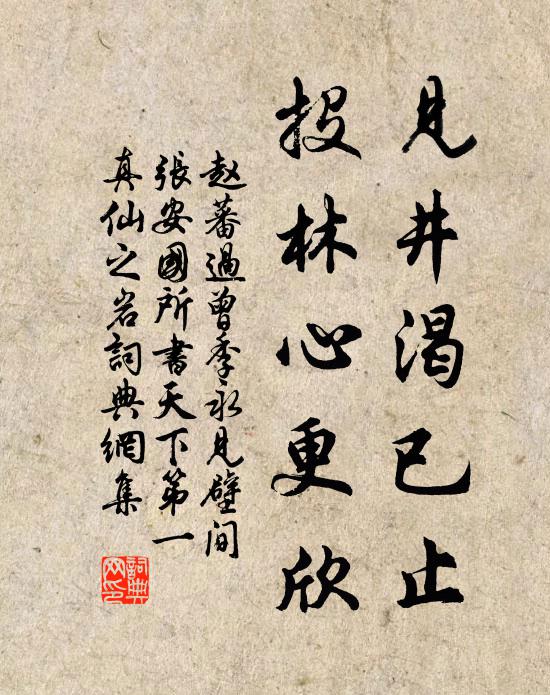 見井渴已止
投林心更欣
赵蕃過曾季永見壁间
張安國所書天下第一
真仙之岩詞典網集
詞典
网印